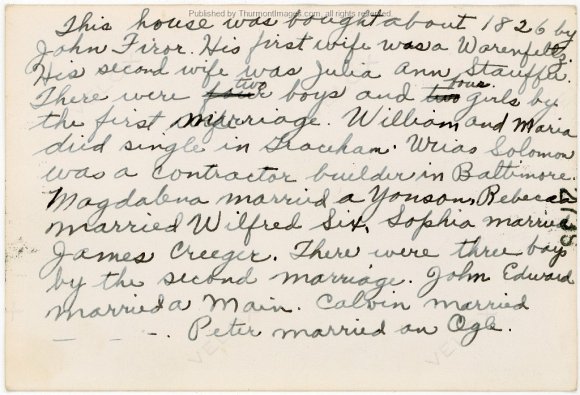 Published by ThurmontImages.com all rights reserved
This house was bought about 1826 by
John Firor. His first wife was a Warenfeltz.
His second wife was Julia Ann Stauffer.
There were four two boys and two four girls by
the first marriage. William and Maria
died single in Graceham. Urias Solomon
was a contractor builder in Baltimore.
Magdalena married a Yonson, Rebecca
married Wilfred Six, Sophia married
James Creeger. There were three boys
by the second marriage. John Edward
married a Main. Calvin married
- - -. Peter married an Ogle.